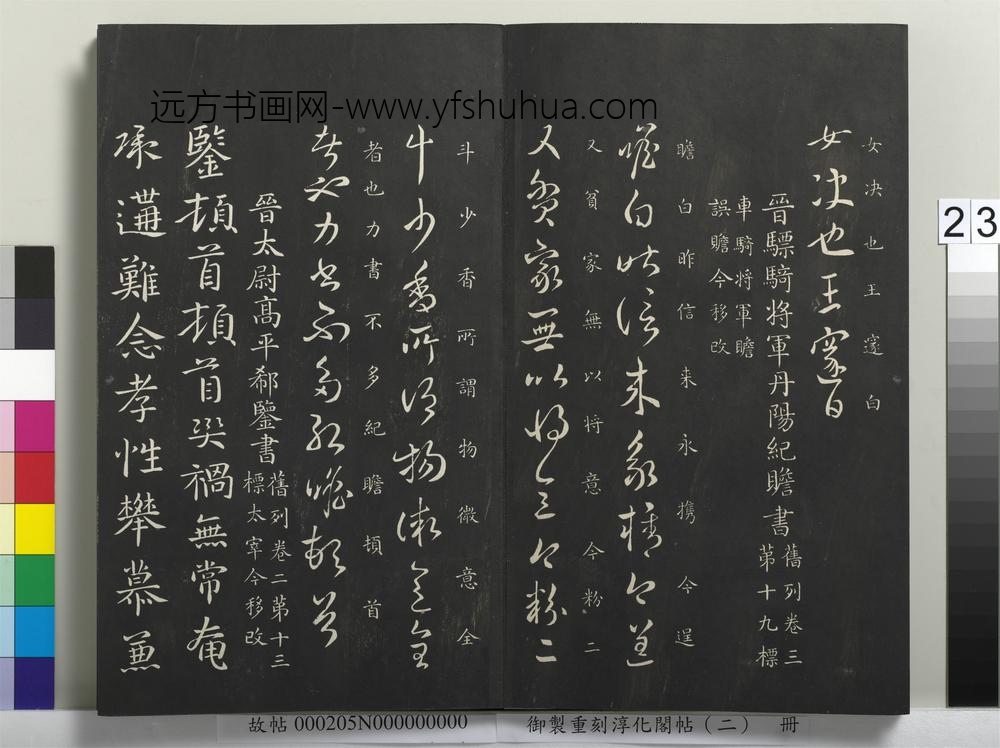 远方书画网-www.yfshuhua.com
女决也王邃白
女决也王邃白
晉驃騎將軍丹陽紀瞻書
舊列卷三
第十九標
車騎將軍瞻
誤瞻今移改
瞻白昨信来永携今逞
瞻白昨信来永携今逞
又貧家無以将意今粉二
又貧家無以将意今粉二
斗少香所謂物微意全
斗少香所謂物微意全
者也力書不多紀瞻頓首
者也力書不多紀瞻頓首
晉太尉高平郗鑒書
舊列卷二第十三
標太宰今移改
鑒頓首頓首災禍無常奄
承遘難念孝性攀慕兼
23
故帖 000205N000000000
御製重刻淳化閣帖（二） 冊